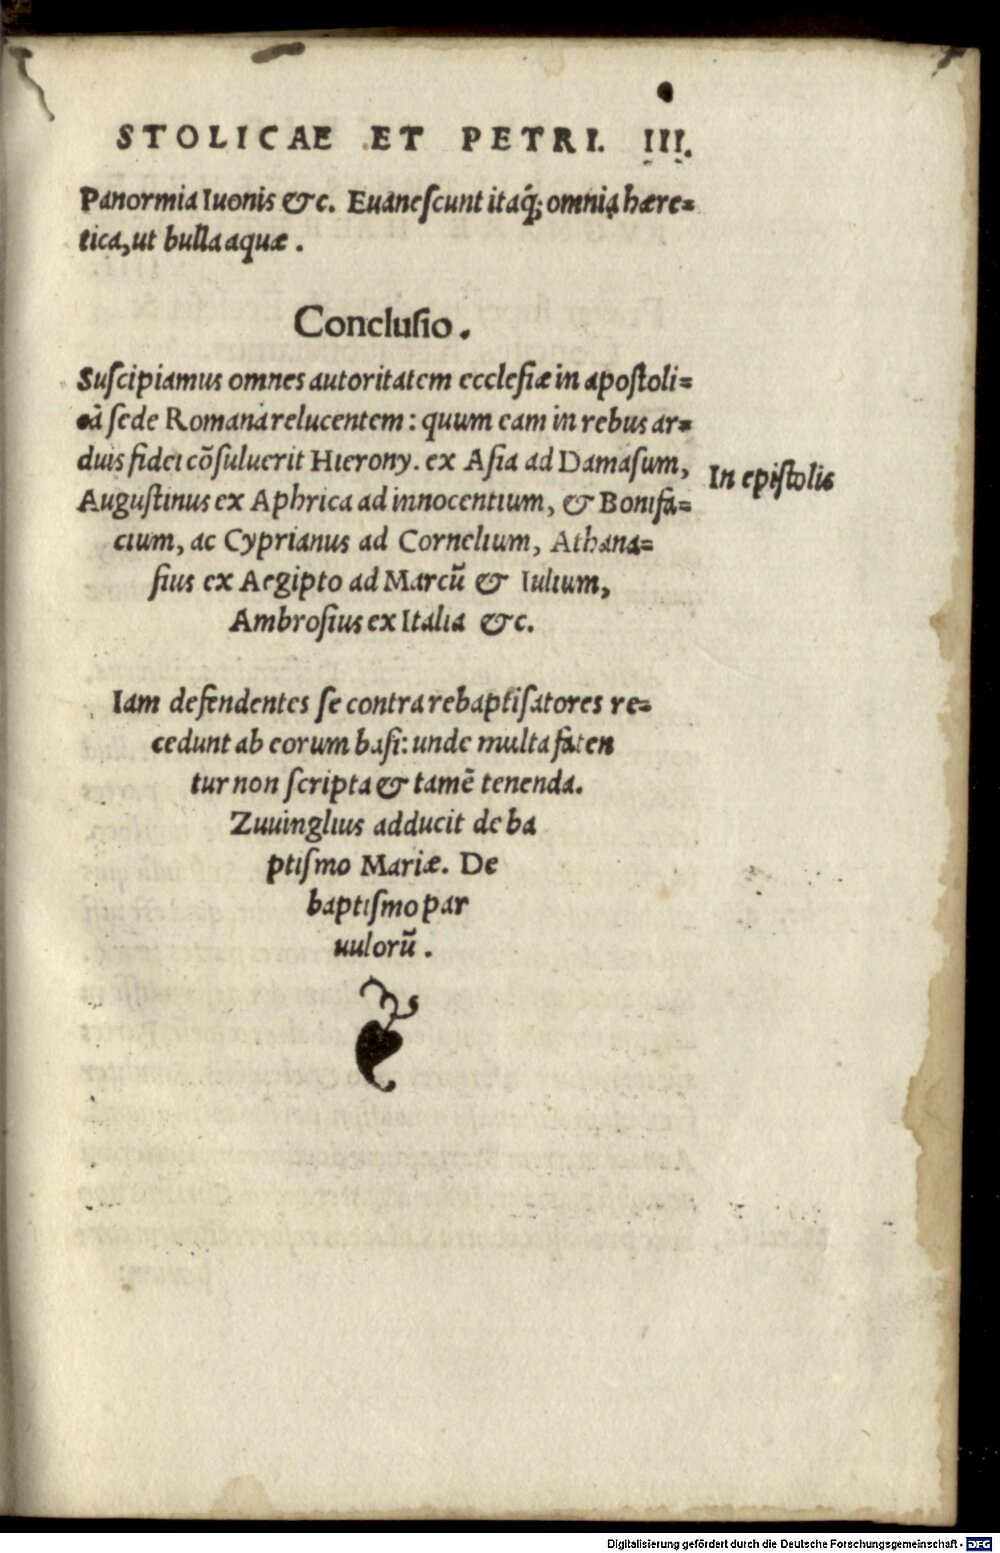 STOLICAE ET PETRI. III.
Panormia Iuonis &c. Euanescunt itaq́; omnia hære=
tica, ut bulla aquæ.
Conclusio.
Suscipiamus omnes autoritatem ecclesiæ in apostoli=
câ sede Romana relucentem: quum eam in rebus ar=
duis fidei cõsuluerit Hierony. ex Asia ad Damasum,
In epistolis
Augustinus ex Aphrica ad innocentium, & Bonifa=
cium, ac Cyprianus ad Cornelium, Athana=
sius ex Aegipto ad Marcũ & Iulium,
Ambrosius ex Italia &c.
Iam defendentes se contra rebaptisatores re=
cedunt ab eorum basi: unde multa faten
tur non scripta & tamẽ tenenda.
Zuuinglius adducit de ba
ptismo Mariæ. De
baptismo par
uulorũ.
Digitalisierung gefördert durch die Deutsche Forschungsgemeinschaft - DFG